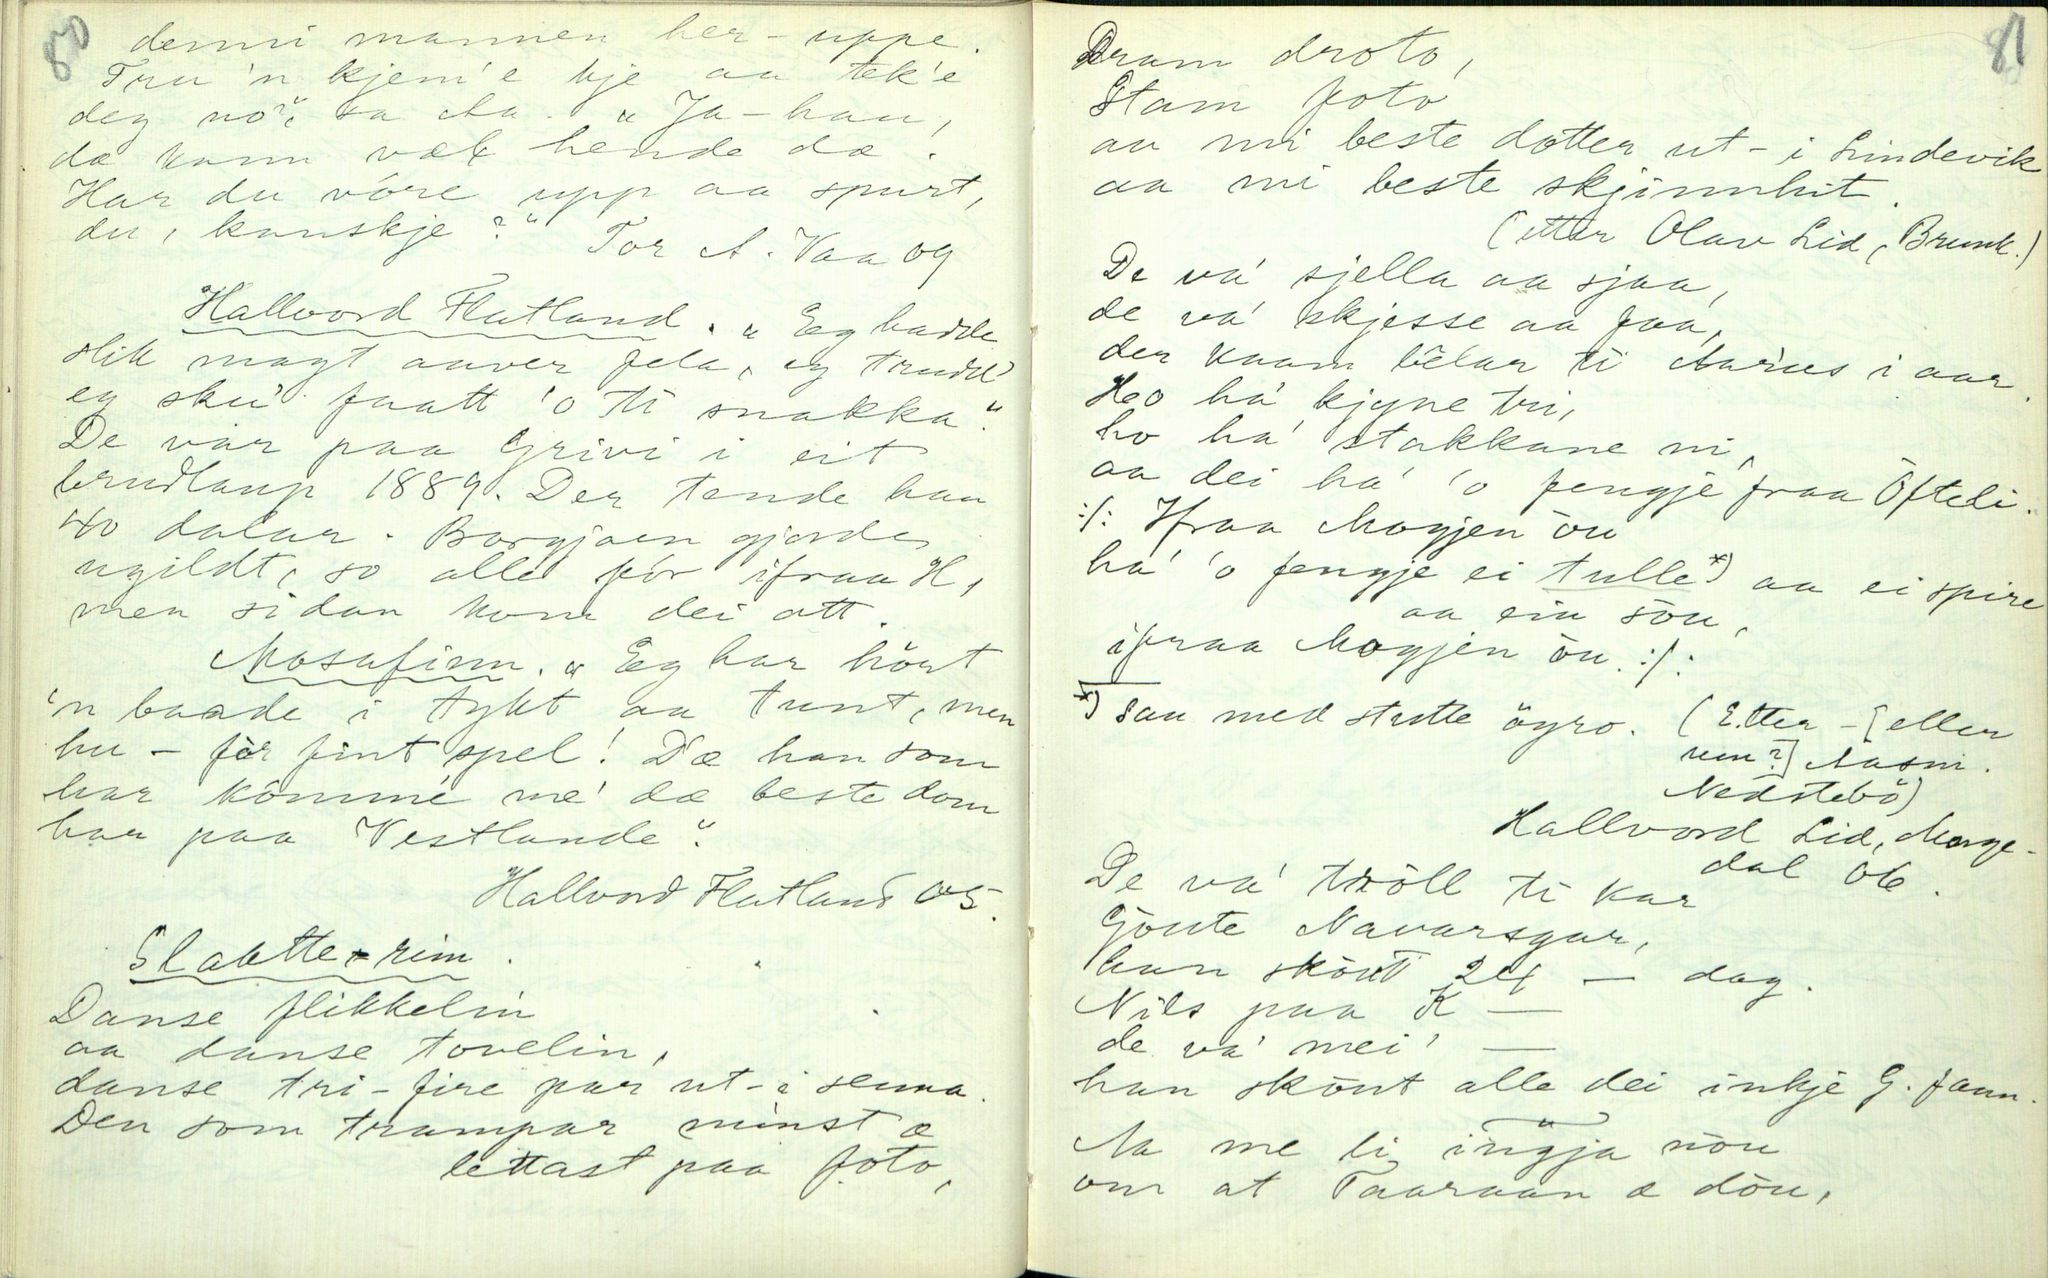 80
denni mannen her-uppe.
Tru 'n kjem'e kje aa tek'e
deg no", sa Aa. "Ja-han,
dæ kann væl hende dæ.
Har du vóre upp aa spurt,
du, kanskje?" Tor A. Vaa og
Hallvord Flatland. "Eg hadde
slik magt aaver fela, eg trudd'
eg sku' faatt 'o ti snakka."
De var paa Grivi i eit
brudlaup 1889. Der tende han
40 dalar. Borgjaen gjorde
ugildt, so alle fór ifraa H,
men sidan kom dei att.
Mosafinn. "Eg har höyrt
'n baade i tykt aa tunt, men
hu - fòr fint spel! D'æ han som
har kômmé me' dæ beste dom
har paa Vestlande".
Hallvord Flatland 05.
Slaatte-rim.
Danse flikkelin
aa danse tovelin,
danse tri-fire par ut-i senna.
Den som trampar minst æ
lettast paa foto,
81
Dram droto,
Stam foto
aa mi beste dotter ut-i Lindevik
aa mi beste skjinnhit.
(etter Olav Lid, Brunk.)
De va' sjella aa sjaa,
de va' skjesse aa faa,
der kaam bêlar ti Aarnes i aar.
Ho ha' kjyne tri,
ho ha' stakkane ni,
aa dei ha' 'o fengje fraa Öfteli.
:/: Ifraa Mogjen öu
ha' 'o fengje ei tulle*) aa ei spire
aa ein söu,
ifraa Mogjen öu. :/:
*) sau med stutte öyro. (Etter - [eller
um?] Aasm.
Nedstebö)
Hallvord Lid, Morge-
dal 06.
De va' tröll ti kar
Gjöute Navarsgar,
han sköut 24 — dag.
Nils paa K —
de va' mei' —
han sköut alle dei inkje G. faan.
Aa me li ingja nöu
om at Taaraan æ döu,